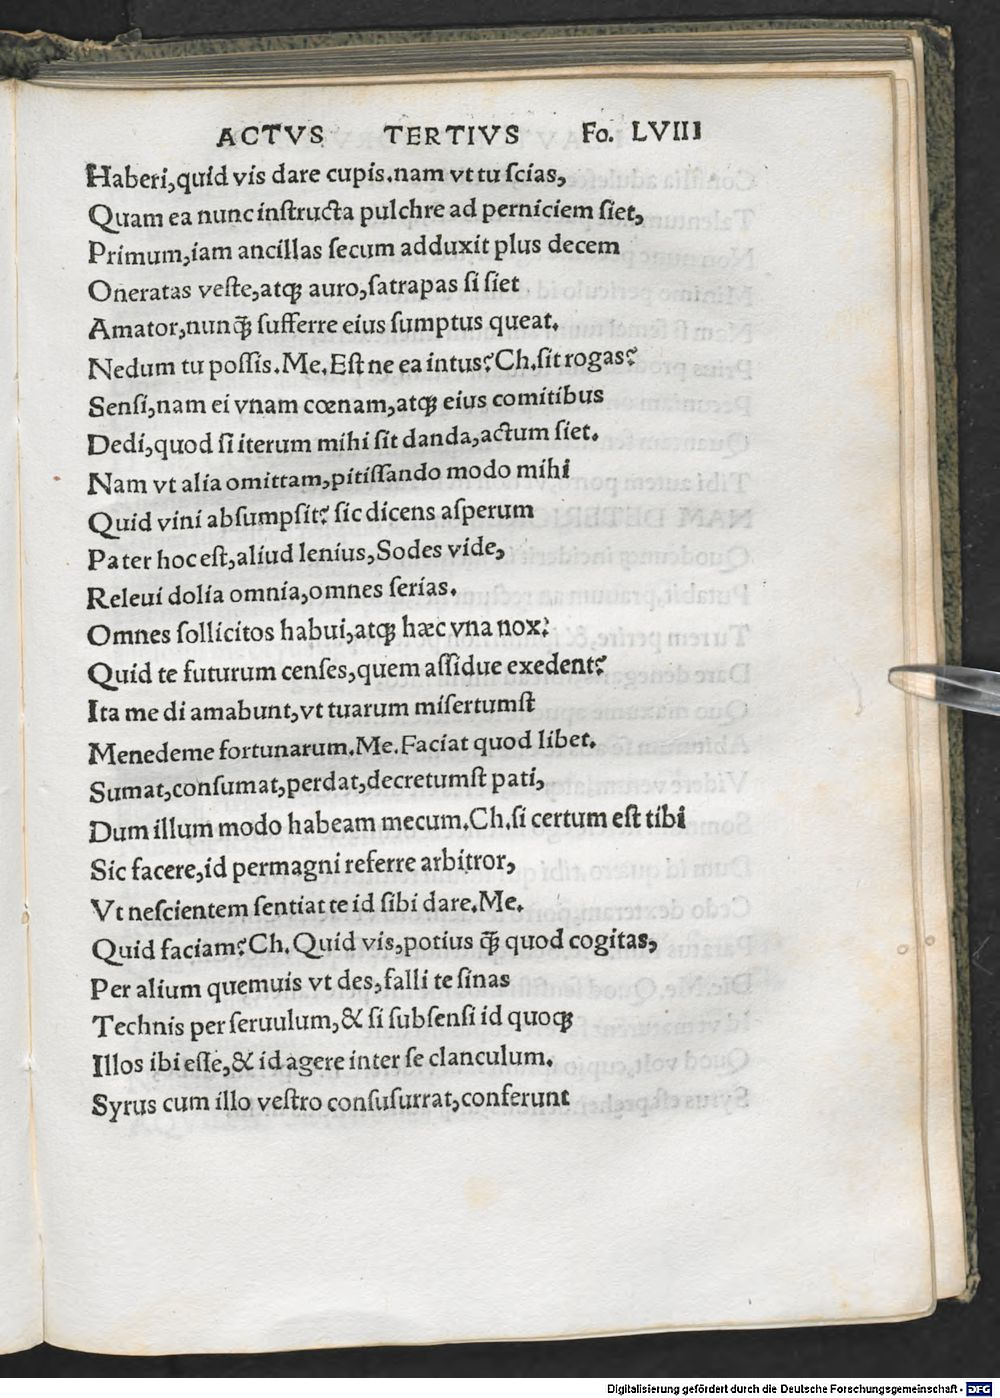 ACTVS TERTIVS Fo. LVIII
Haberi,quid vis dare cupis.nam vt tu ſcias,
Quam ea nunc inſtructa pulchre ad perniciem ſiet,
Primum,iam ancillas ſecum adduxit plus decem
Oneratas veſte,atqꝫ auro,ſatrapas ſi ſiet
Amator,nunq̃ ſufferre eius ſumptus queat.
Nedum tu poſſis.Me.Eſt ne ea intus?Ch.ſit rogas?
Senſi,nam ei vnam cœnam,atqꝫ eius comitibus
Dedi,quod ſi iterum mihi ſit danda,actum ſiet.
Nam vt alia omittam,pitiſſando modo mihi
Quid vini abſumpſit?ſic dicens aſperum
Pater hoc eſt,aliud lenius,Sodes vide,
Releui dolia omnia,omnes ſerias.
Omnes ſollicitos habui,atqꝫ hæc vna nox?
Quid te futurum cenſes,quem aſſidue exedent?
Ita me di amabunt,vt tuarum miſertumſt
Menedeme fortunarum.Me.Faciat quod libet.
Sumat,conſumat,perdat,decretumſt pati,
Dum illum modo habeam mecum.Ch.ſi certum eſt tibi
Sic facere,id permagni referre arbitror,
Vt neſcientem ſentiat te id ſibi dare.Me.
Quid faciam?Ch.Quid vis,potius q̃ quod cogitas,
Per alium quemuis vt des,falli te ſinas
Technis per ſeruulum,& ſi ſubſenſi id quoqꝫ
Illos ibi eſſe,& id agere inter ſe clanculum.
Syrus cum illo veſtro conſuſurrat,conferunt
Digitalisierung gefördert durch die Deutsche Forschungsgemeinschaft - DFG